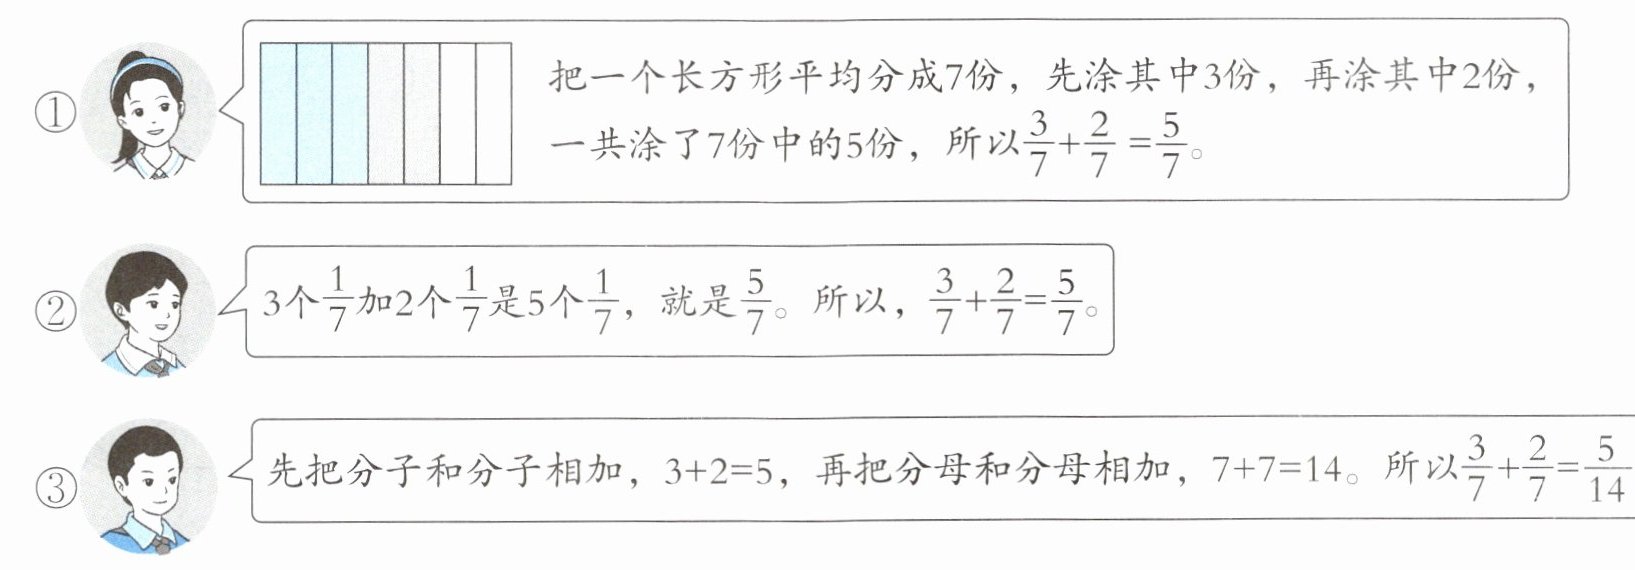 ① 把一个长方形平均分成7份，先涂其中3份，再涂其中2份，
一共涂了7份中的5份，所以3/7+2/7=5/7。
② 3个1/7加2个1/7是5个1/7，就是5/7。所以，3/7+2/7=5/7。
③ 先把分子和分子相加，3+2=5，再把分母和分母相加，7+7=14。所以3/7+2/7=5/14